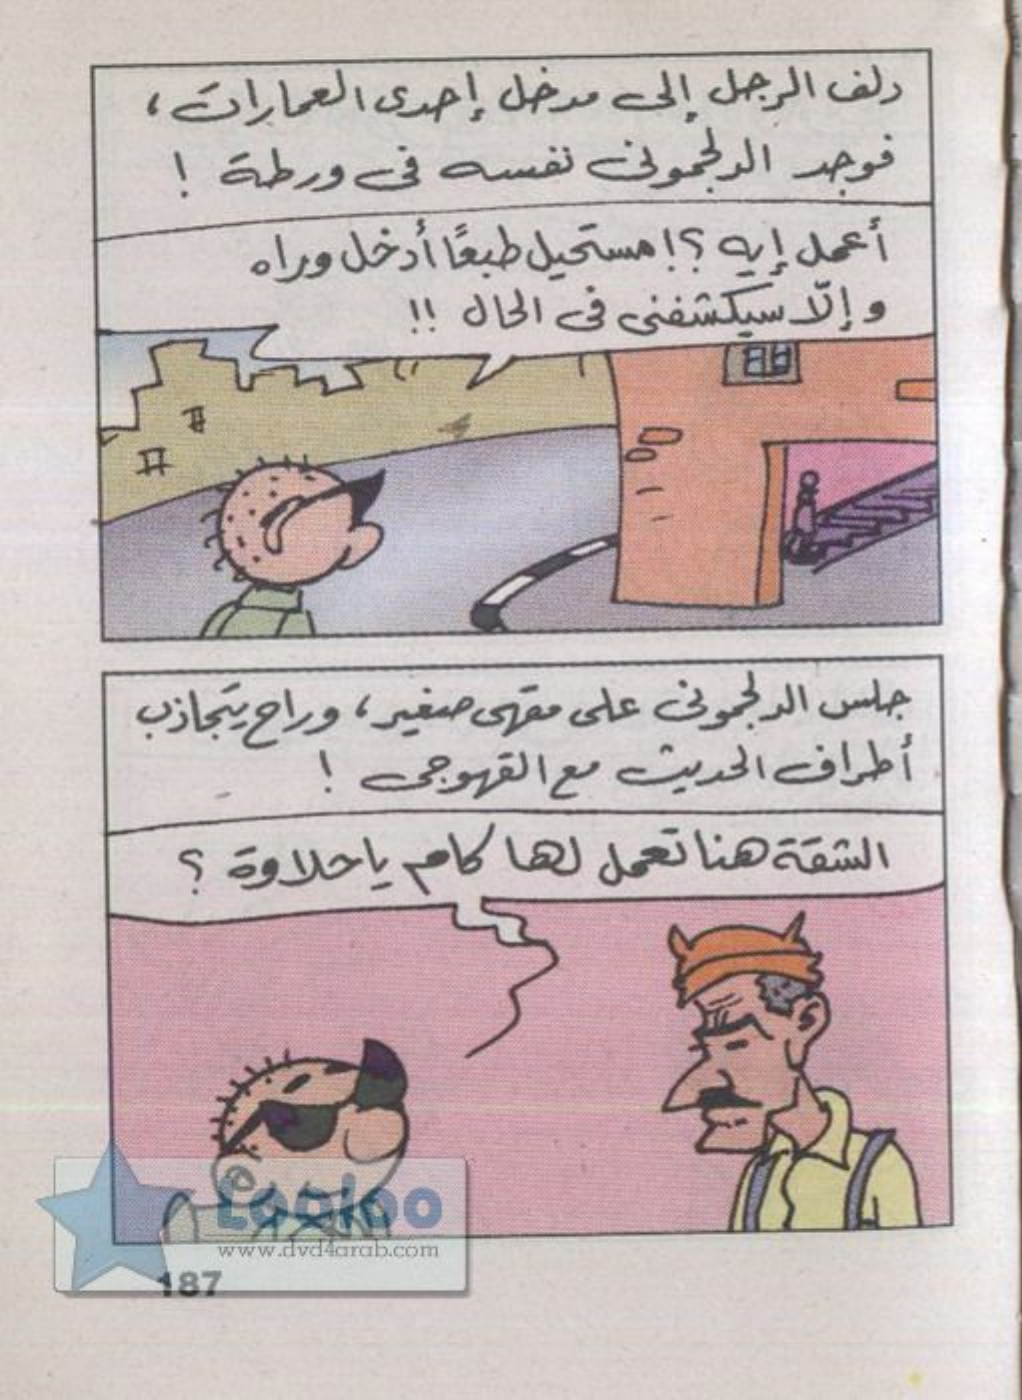 دلف الرجل إلى مدخل إحدى العمارات،
فوجد الدلجمونى نفسه فى ورطة !
أعمل إيه ؟! مستحيل طبعًا أدخل وراه
و إلّا سيكشفنى فى الحال !!
جلس الدلجمونى على مقهى صغير، وراح يتجاذب
أطراف الحديث مع القهوجى !
الشقة هنا تعمل لها كام يا حلاوة ؟
Looloo
www.dvd4arab.com
187